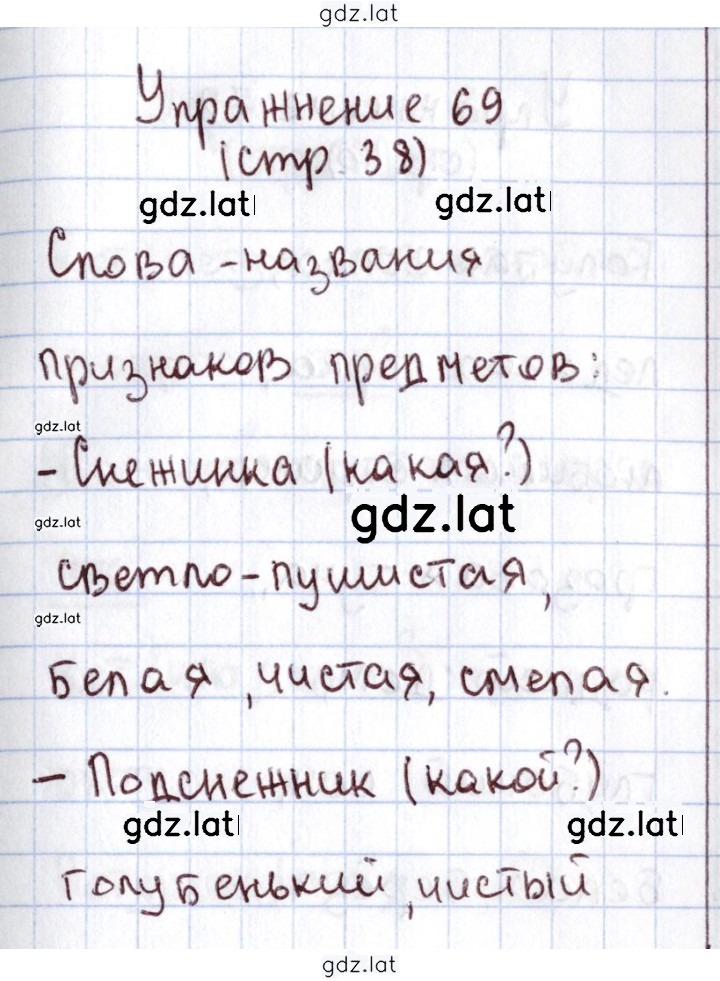 gdz.lat
Упражнение 69
(стр 38)
gdz.lat gdz.lat
Слова - названия
признаков предметов:
gdz.lat
- Снежинка (какая?)
gdz.lat gdz.lat
светло - пушистая,
gdz.lat
белая, чистая, смелая.
- Подснежник (какой?)
gdz.lat gdz.lat
голубенький, чистый
gdz.lat